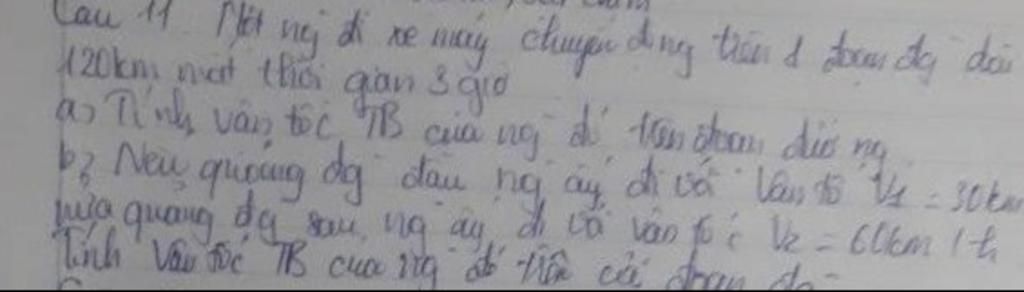 Câu 11. Một ng đi xe máy chuyển động trên 1 đoạn đg dài
120km mất thời gian 3 giờ
a) Tính vận tốc TB của ng đó trên đoạn đường
b, Nếu quãng đg đầu ng ấy đi với vân tố V1 = 30km
nửa quãng đg sau, ng ấy đi với vận tốc V2 = 60km/h
Tính vận tốc TB của ng đó trên cả đoạn đg